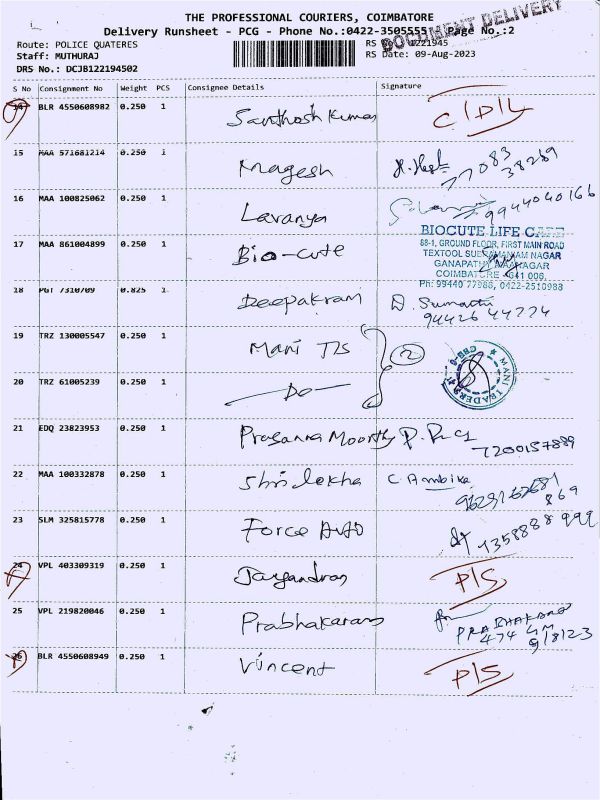 THE PROFESSIONAL COURIERS, COIMBATORE
DOCUMENT DELIVERY
Delivery Runsheet - PCG - Phone No.:0422-3505555 Page No.:2
Route: POLICE QUATERES
Staff: MUTHURAJ
RS Date: 09-Aug-2023
DRS No.: DCJB122194502
S No Consignment No Weight PCS Consignee Details Signature
BLR 4550608982 0.250 1 Santhosh Kumar
15 MAA 571681214 0.250 1 Magesh 77083 38269
16 MAA 100825062 0.250 1 Lavanya 9944040166
17 MAA 861004899 0.250 1 Bio-cute
BIOCUTE LIFE CARE
88-1, GROUND FLOOR, FIRST MAIN ROAD
TEXTOOL NAGAR
GANAPATHY
COIMBATORE -641 006,
Ph: 99440 77988, 0422-2510988
18 PGT 7310709 0.825 1 Deepakram D. Sumathi
19 TRZ 130005547 0.250 1 Mani Tls 2
20 TRZ 61005239 0.250 1 Do
MANI TRADERS
21 EDQ 23823953 0.250 1 Prasanna Moorthy 7200157889
22 MAA 100332878 0.250 1 Shri lekha C. Ambika
23 SLM 325815778 0.250 1 Force Auto
24 VPL 403309319 0.250 1 P/S
25 VPL 219820046 0.250 1 Prabhakaran
474
9/8/23
26 BLR 4550608949 0.250 1 Vincent P/S